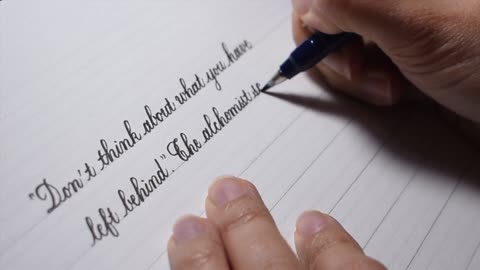 "Don't think about what you have
left behind". The alchemist sa